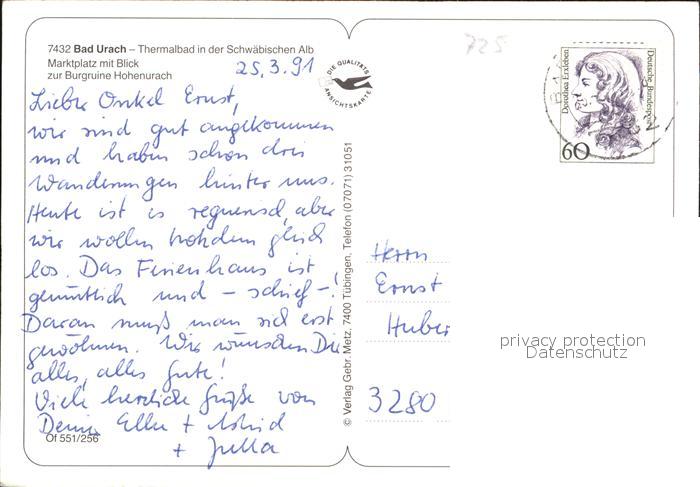 7432 Bad Urach – Thermalbad in der Schwäbischen Alb
Marktplatz mit Blick
zur Burgruine Hohenurach
25.3.91
DIE QUALITÄTS
ANSICHTSKARTE
Lieber Onkel Ernst,
wir sind gut angekommen
und haben schon drei
Wanderungen hinter uns.
Heute ist es regnerisch, aber
wir wollen trotzdem gleich
los. Das Ferienhaus ist
gemütlich und – schief –!
Daran muß man sich erst
gewöhnen. Wir wünschen Dir
alles, alles Gute!
Viele herzliche Grüße von
Deiner Elke + Astrid
+ Jutta
Of 551/256
© Verlag Gebr. Metz, 7400 Tübingen, Telefon (07071) 31051
725
Dorothea Erxleben
Deutsche Bundespost
60
Herrn
Ernst
Huber
3280
privacy protection
Datenschutz